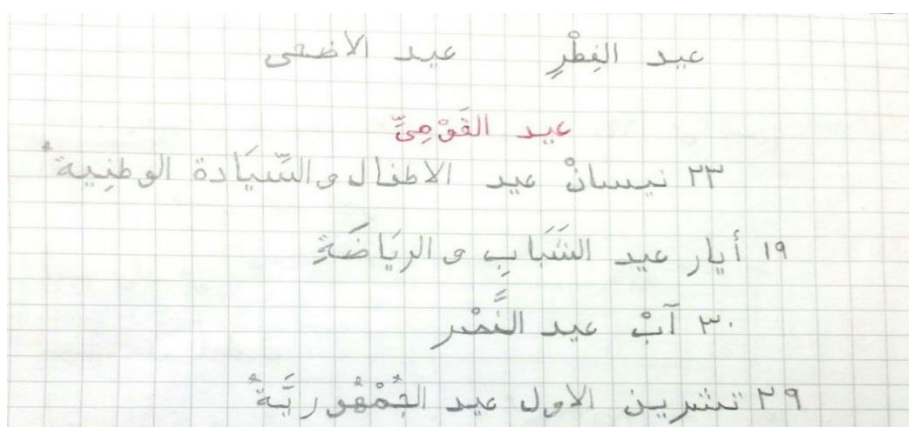 عيد الفِطْرِ عيد الاضحى
عيد القَوْمِيِّ
٢٣ نيسانْ عيد الاطفال والسِّيَادة الوطنِية
١٩ أيار عيد الشَبَابِ و الريَاضَةِ
٣٠ آبْ عيد النَّصْر
٢٩ تشرين الاول عيد الجُمْهُوريَّةُ